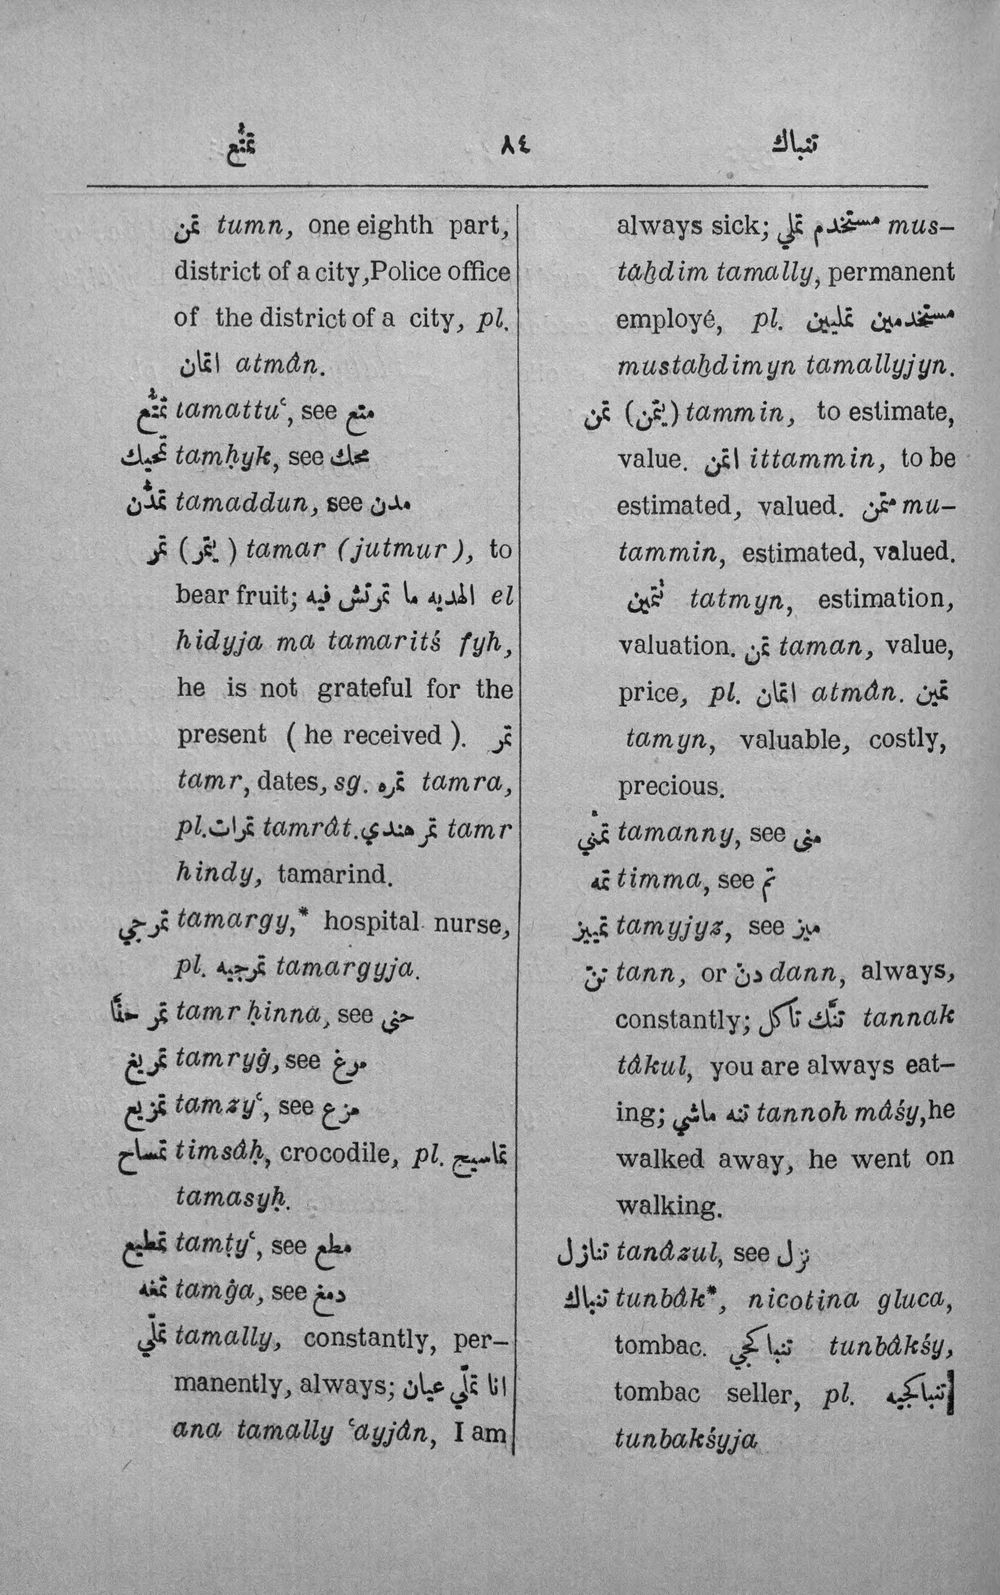 تمتّع ٨٤ تنباك
تمن tumn, one eighth part,
district of a city, Police office
of the district of a city, pl.
اتمان atmân.
تمتّع tamattuʿ, see متع
تمحيك tamḥyk, see محك
تمدّن tamaddun, see مدن
تمر (يتمر) tamar (jutmur), to
bear fruit; الهديه ما تمرتش فيه el
hidyja ma tamaritś fyh,
he is not grateful for the
present (he received). تمر
tamr, dates, sg. تمره tamra,
pl. تمرات tamrât. تمر هندي tamr
hindy, tamarind.
تمرجي tamargy,* hospital nurse,
pl. تمرجيه tamargyja.
تمر حنّا tamr ḥinna, see حنى
تمريغ tamryġ, see مرغ
تمزيع tamzyʿ, see مزع
تمساح timsâḥ, crocodile, pl. تماسيح
tamasyḥ.
تمطيع tamṭyʿ, see مطع
تمغه tamġa, see دمغ
تملّي tamally, constantly, per-
manently, always; انا تملّي عيان
ana tamally ʿayjân, I am
always sick; مستخدم تملي mus-
taḫdim tamally, permanent
employé, pl. مستخدمين تمليين
mustaḫdimyn tamallyjyn.
تمن (يتمن) tammin, to estimate,
value. اتمن ittammin, to be
estimated, valued. متمن mu-
tammin, estimated, valued.
تتمين tatmyn, estimation,
valuation. تمن taman, value,
price, pl. اتمان atmân. تمين
tamyn, valuable, costly,
precious.
تمنّي tamanny, see منى
تمه timma, see تم
تمييز tamyjyz, see ميز
تنّ tann, or دنّ dann, always,
constantly; تنّك تاكل tannak
tâkul, you are always eat-
ing; تنه ماشي tannoh mâśy, he
walked away, he went on
walking.
تنازل tanâzul, see نزل
تنباك tunbâk*, nicotina gluca,
tombac. تنباكجي tunbâkśy,
tombac seller, pl. تنباكجيه
tunbakśyja